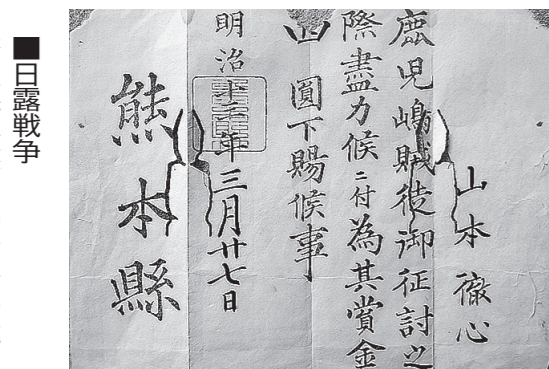 山本徹心
鹿児嶋賊徒御征討之
際盡力候ニ付為其賞金
四圓下賜候事
明治十年三月廿七日
熊本縣
■日露戦争